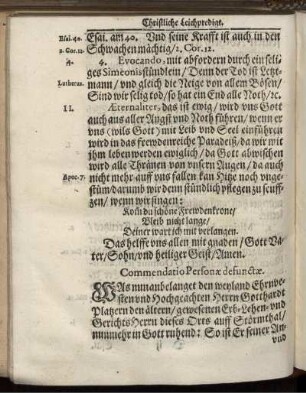 Christliche Leichpredigt.
Esai. 40.
Esai. am 40. Und seine Krafft ist auch in den
2. Cor. 12.
Schwachen mächtig / 2. Cor. 12.
4. Evocando, mit abfordern durch ein seli-
ges Simeonisstündlein / Denn der Tod ist Letz-
Lutherus.
mann / und gleich die Neige von allem Bösen /
Sind wir selig tod / so hat ein End alle Noth / ꝛc.
II.
Æternaliter, das ist ewig / wird uns Gott
auch aus aller Angst und Noth führen / wenn er
uns (wils Gott) mit Leib und Seel einführen
wird in das frewdenreiche Paradeiß / da wir mit
ihm leben werden ewiglich / da Gott abwischen
wird alle Thränen von unsern Augen / da auch
Apoc. 7.
nicht mehr auff uns fallen kan Hitze noch unge-
stüm / darumb wir denn stündlich pflegen zu seuff-
zen / wenn wir singen:
Kom du schöne Frewdenkrone /
Bleib nicht lange /
Deiner wart ich mit verlangen.
Das helffe uns allen mit gnaden / Gott Va-
ter / Sohn / und heiliger Geist / Amen.
Commendatio Personæ defunctæ.
WAs nun anbelanget den weyland Ehrnve-
sten und Hochgeachten Herrn Gotthardt
Platzern den ältern / gewesenen Erb- Lehen- und
Gerichts Herrn dieses Orts auff Störmthal /
nunmehr in Gott ruhend: So ist Er seiner An-
und